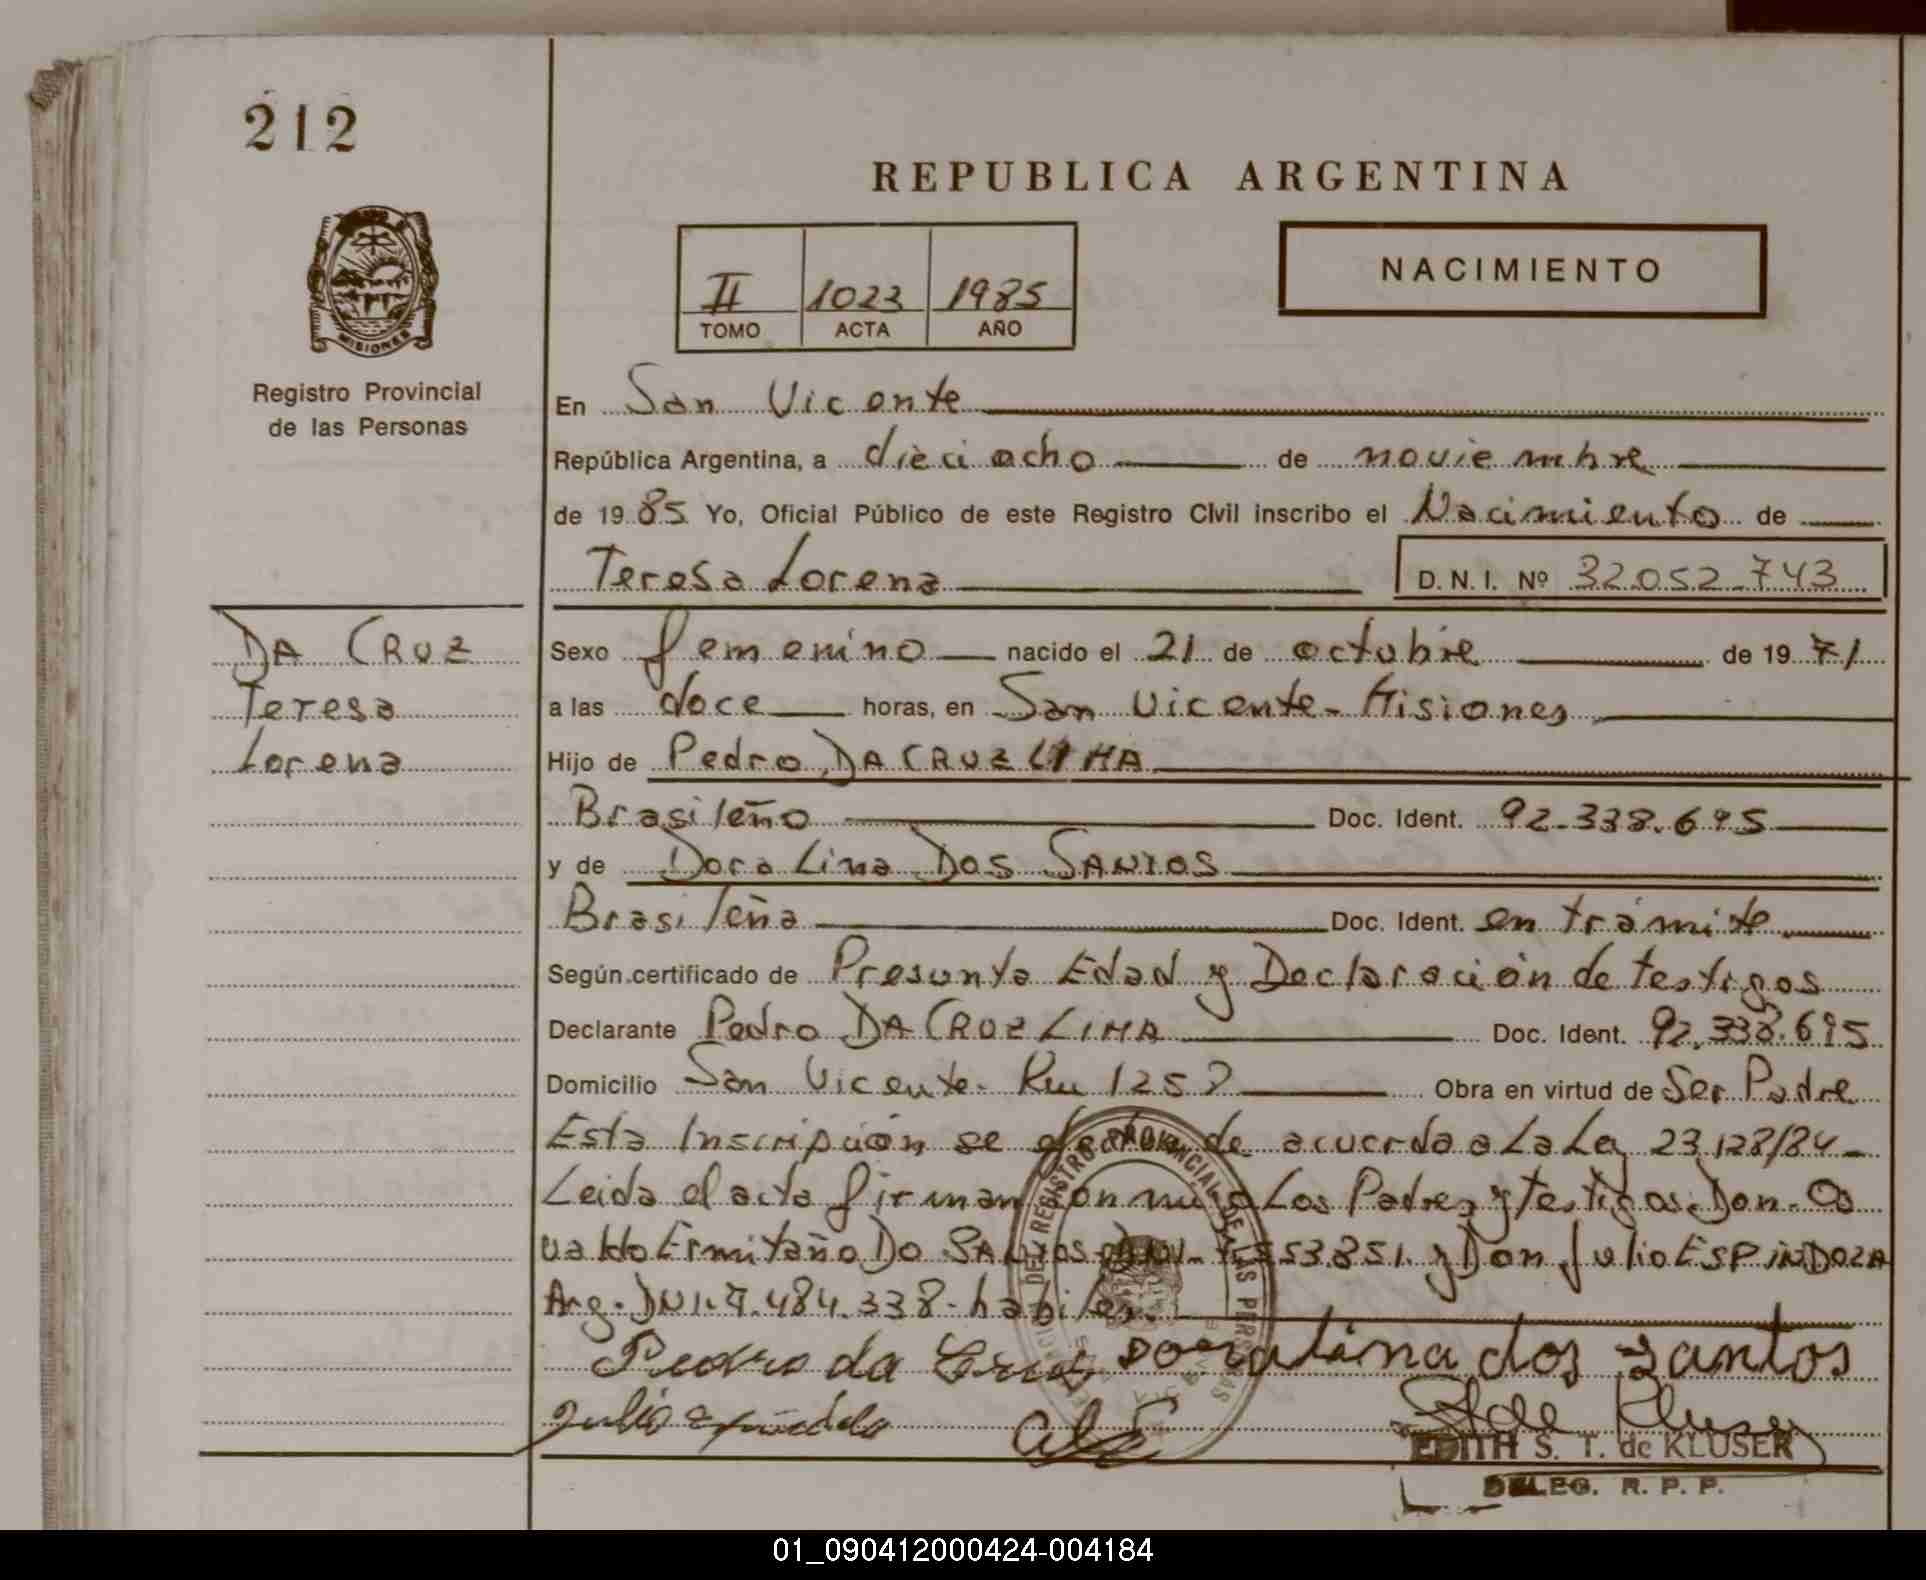 212
REPUBLICA ARGENTINA
NACIMIENTO
II 1023 1985
TOMO ACTA AÑO
MISIONES
Registro Provincial
de las Personas
En San Vicente
República Argentina, a dieciocho de noviembre
de 1985 Yo, Oficial Público de este Registro Civil inscribo el Nacimiento de
Teresa Lorena D.N.I. Nº 32.052.743
DA CRUZ
Teresa
Lorena
Sexo femenino nacido el 21 de octubre de 1971
a las doce horas, en San Vicente - Misiones
Hijo de Pedro DA CRUZ LIMA
Brasileño Doc. Ident. 92.338.695
y de Dora Lina DOS SANTOS
Brasileña Doc. Ident. en trámite
Según certificado de Presunta Edad y Declaración de testigos
Declarante Pedro DA CRUZ LIMA Doc. Ident. 92.338.695
Domicilio San Vicente - Km Obra en virtud de Ser Padre
Esta Inscripción se de acuerdo a La Ley 23.128/84 -
Leida el acta firman con migo Los Padres y testigos Don - Os
valdo Ermitaño DO SANTOS - DNI - 553.851. y Don Julio ESPINDOLA
Arg. DNI. 7.484.338 - habiles.
Pedro da Cruz Doralina dos Santos
Julio Espindola
EDITH S. T. de KLUSER
DELEG. R. P. P.
DEL REGISTRO PROVINCIAL DE LAS PERSONAS
01_090412000424-004184